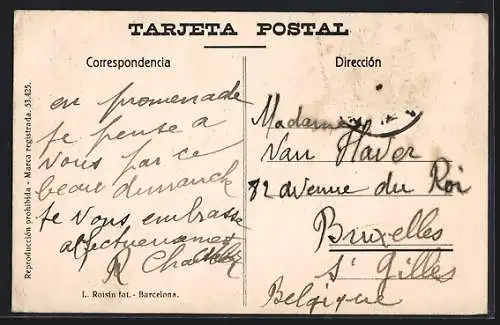 TARJETA POSTAL
Correspondencia
Dirección
Reproducción prohibida - Marca registrada. 53.425.
en promenade
je pense a
vous par ce
beau dimanche
je vous embrasse
affectueusement
R
Madame
Van Haver
82 avenue du Roi
Bruxelles
St Gilles
Belgique
L. Roisin fot. - Barcelona.